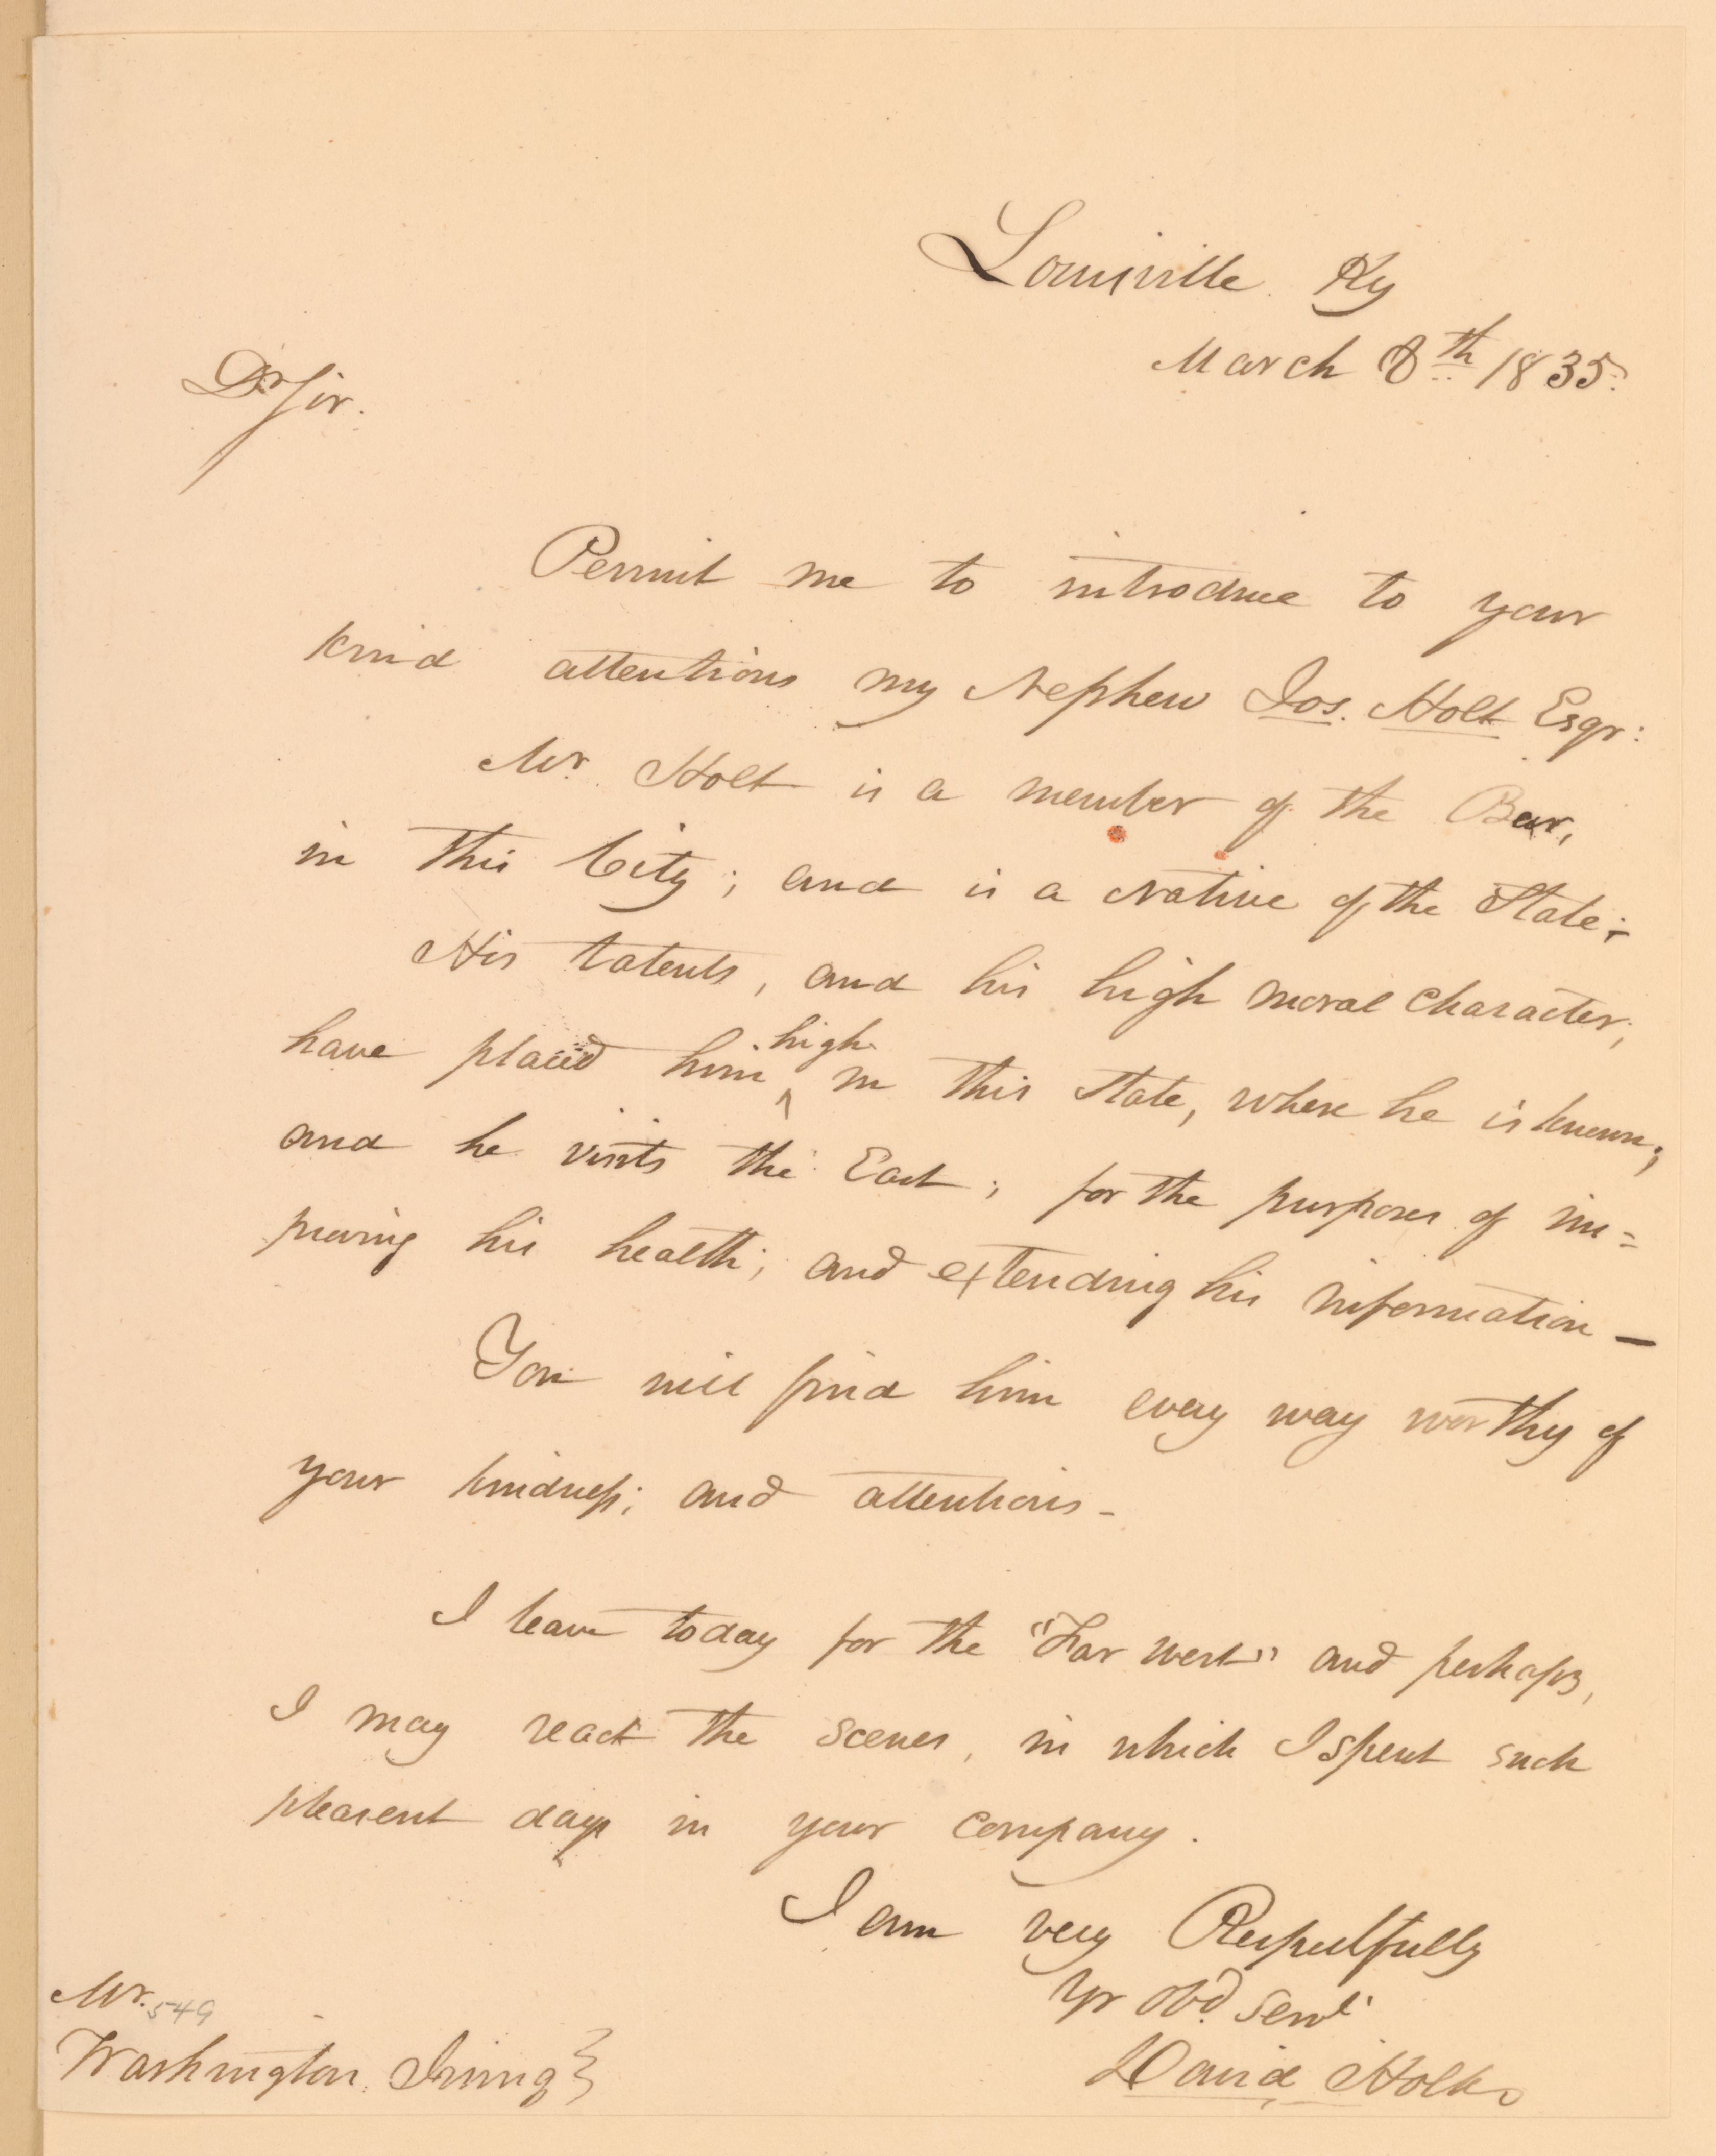 Louisville Ky
March 8th 1835.
Dr Sir.
Permit me to introduce to your
kind attentions my Nephew Jos. Holt Esqr:
Mr. Holt is a member of the Bar,
in this City; and is a native of the State;
His talents, and his high moral character,
high
have placed him ^ in this State, where he is known;
and he visits the East; for the purposes of im=
proving his health; and extending his information —
You will find him every way worthy of
your kindness; and attentions -
I leave today for the "Far West" and perhaps,
I may reach the scenes, in which I spent such
pleasent days in your company.
I am very Respectfully
Yr obd. Servt
David Holt
Mr. 549
Washington Irving }